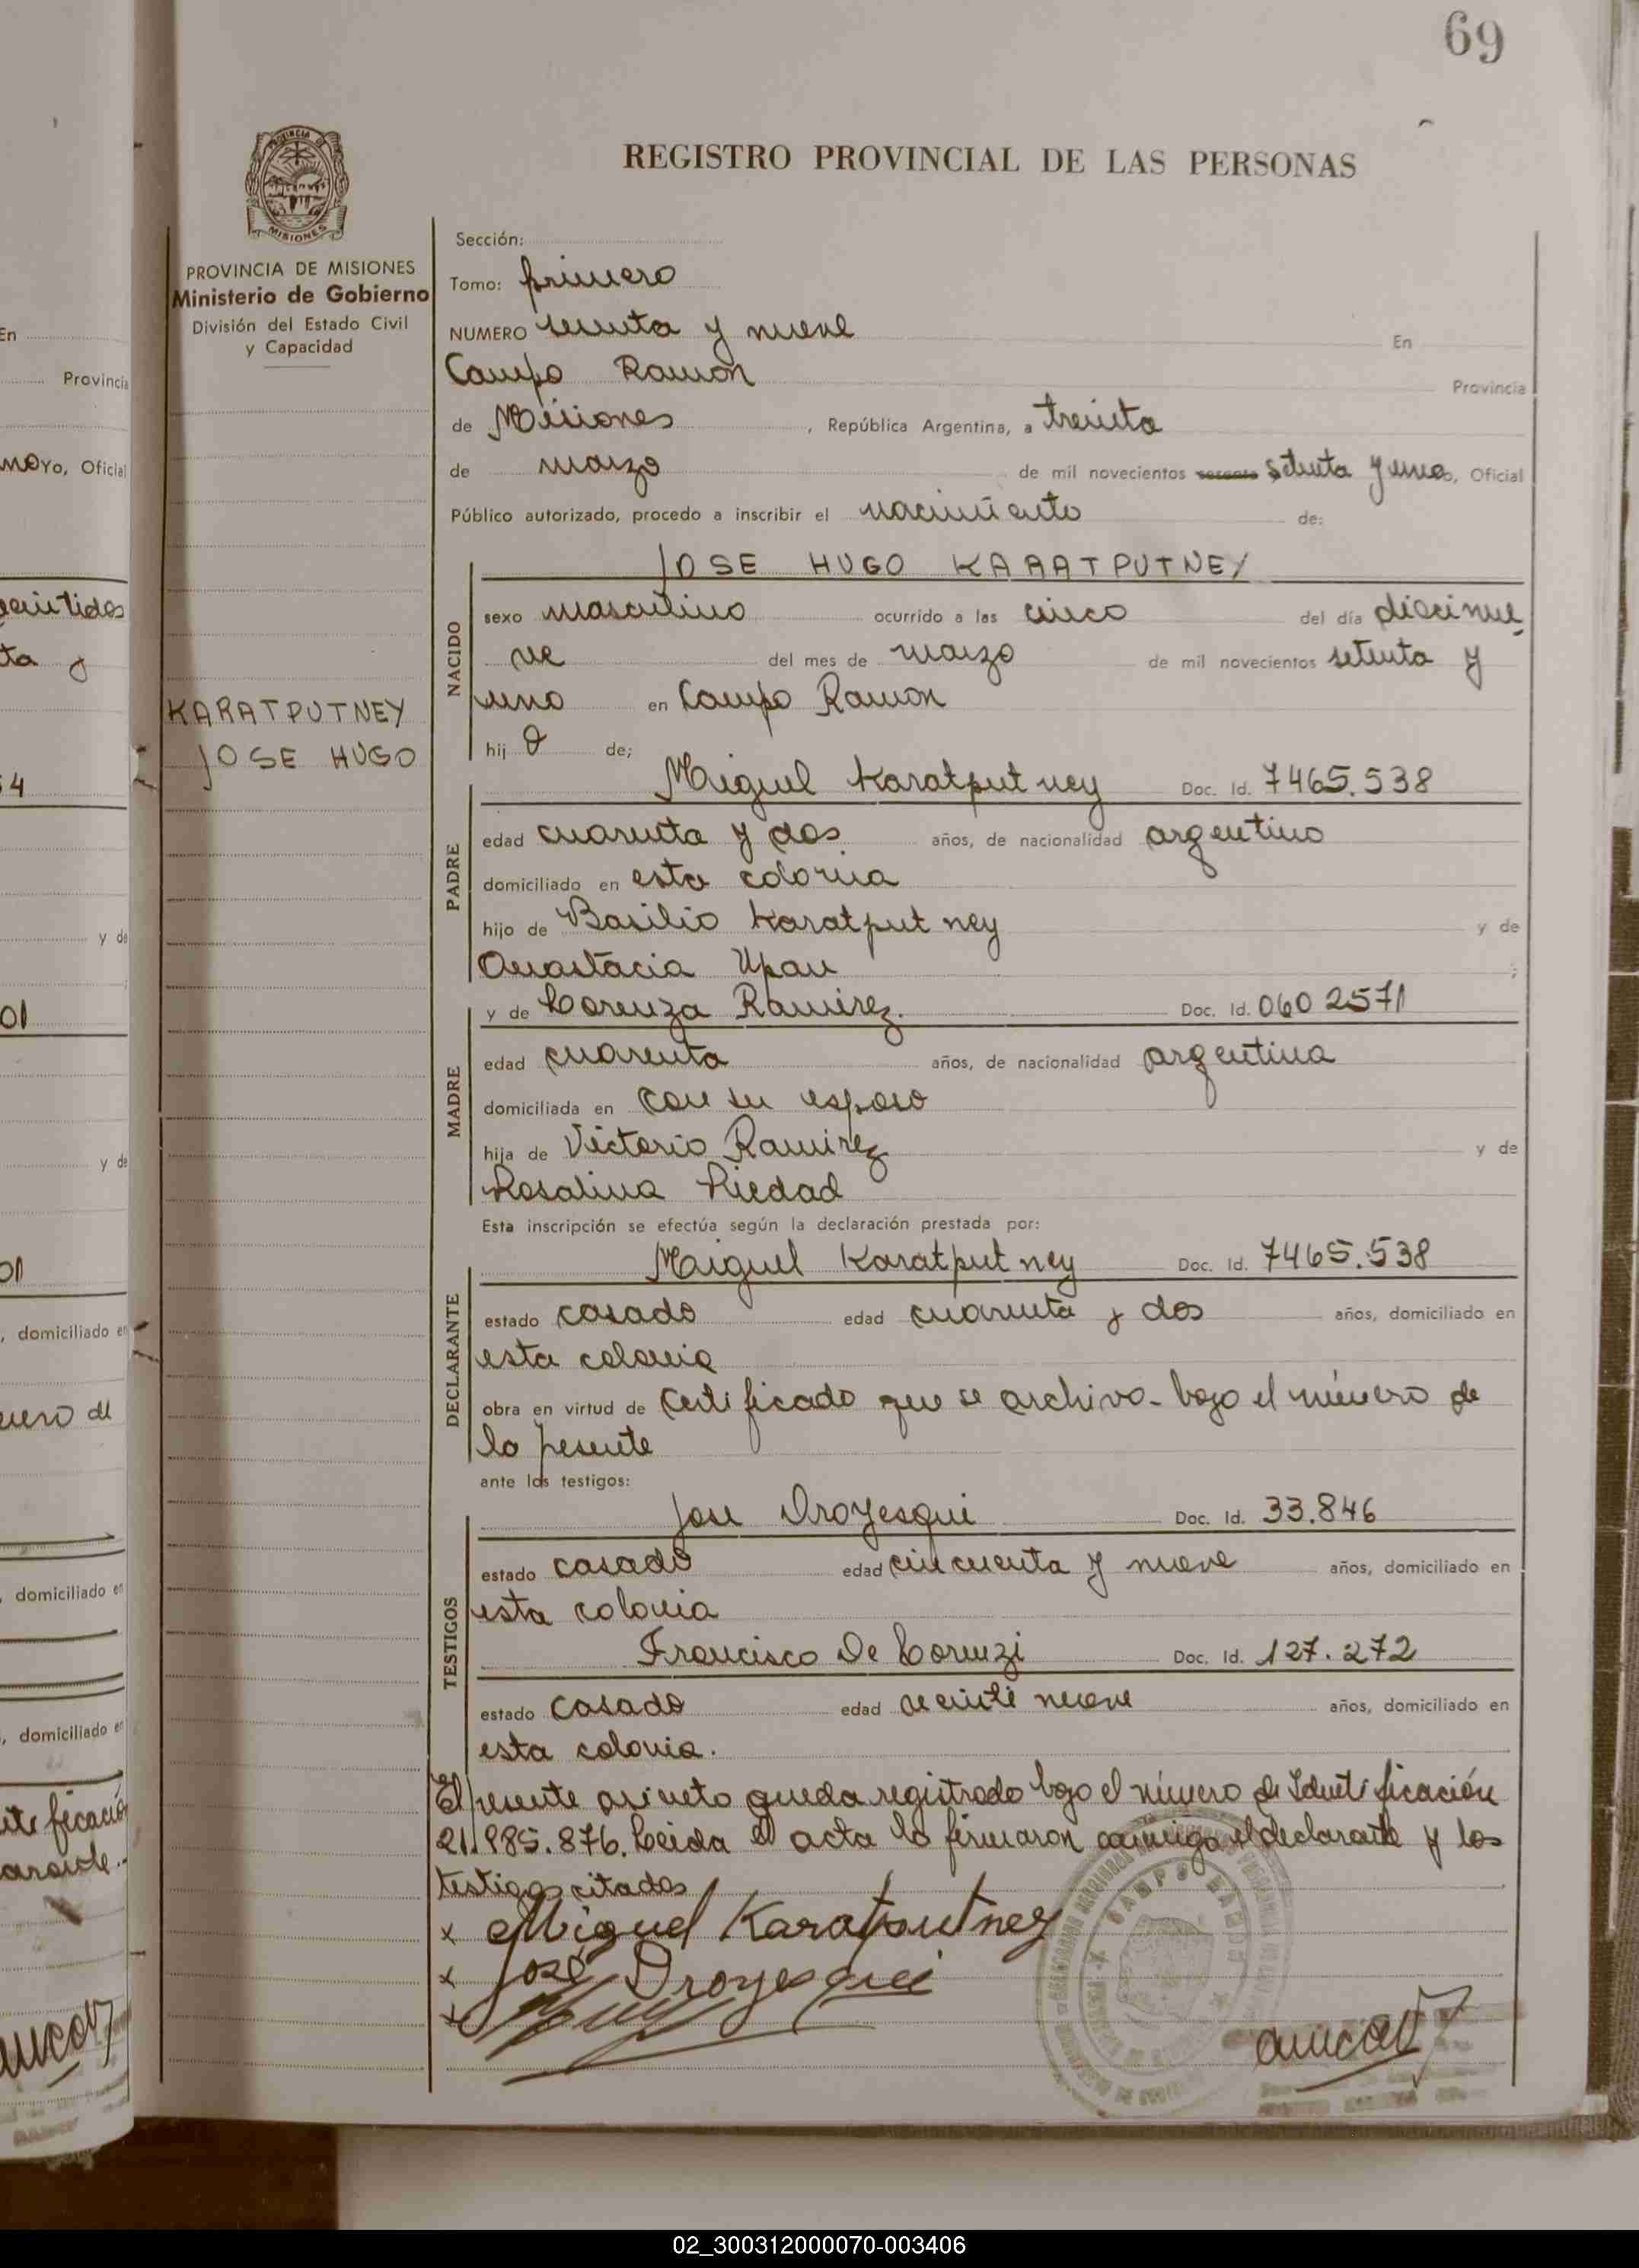 69
REGISTRO PROVINCIAL DE LAS PERSONAS
PROVINCIA DE MISIONES
MISIONES
PROVINCIA DE MISIONES
Ministerio de Gobierno
División del Estado Civil
y Capacidad
KARATPUTNEY
JOSE HUGO
Sección:
Tomo: primero
NUMERO sesenta y nueve En
Campo Ramon Provincia
de Misiones , República Argentina, a treinta
de marzo de mil novecientos sesenta setenta y uno, Oficial
Público autorizado, procedo a inscribir el nacimiento de:
NACIDO
JOSE HUGO KARATPUTNEY
sexo masculino ocurrido a las cinco del día diecinue
ve del mes de marzo de mil novecientos setenta y
uno en Campo Ramon
hij o de;
PADRE
Miguel Karatputney Doc. Id. 7465.538
edad cuarenta y dos años, de nacionalidad argentino
domiciliado en esta colonia
hijo de Basilio Karatputney y de
Anastacia Upau ;
MADRE
y de Lorenza Ramirez. Doc. Id. 060 2571
edad cuarenta años, de nacionalidad argentina
domiciliada en con su esposo
hija de Victorio Ramirez y de
Rosalina Piedad
Esta inscripción se efectúa según la declaración prestada por:
DECLARANTE
Miguel Karatputney Doc. Id. 7465.538
estado casado edad cuarenta y dos años, domiciliado en
esta colonia
obra en virtud de Certificado que se archiva bajo el número de
la presente
ante los testigos:
TESTIGOS
Jose Droyesqui Doc. Id. 33.846
estado casado edad cincuenta y nueve años, domiciliado en
esta colonia
Francisco De Lorenzi Doc. Id. 127.272
estado casado edad veinte nueve años, domiciliado en
esta colonia.
El presente asiento queda registrado bajo el número de Identificación
21.985.876. Leida el acta la firmaron conmigo el declarante y los
testigos citados
x Miguel Karatputney
x José Droyesqui
x
CAMPO RAMON
En
Provincia
mayo, Oficial
veintidos
ta y
54
y de
01
y de
01
, domiciliado en
número de
, domiciliado en
, domiciliado en
02_300312000070-003406